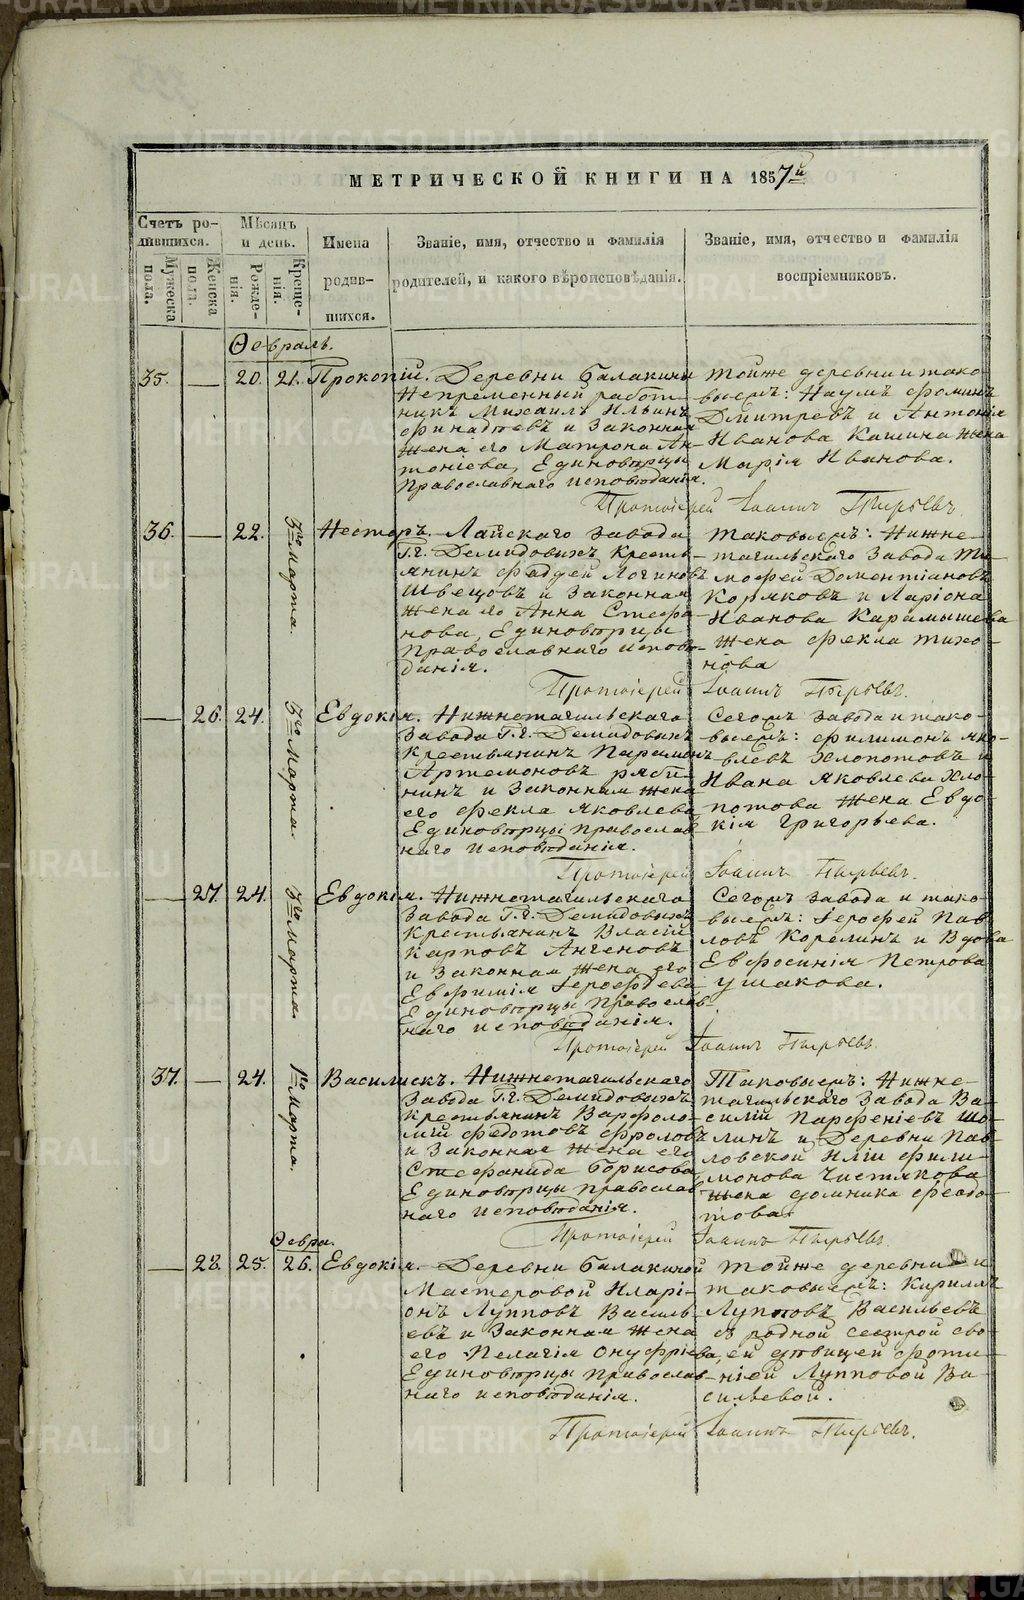 МЕТРИЧЕСКОЙ КНИГИ НА 1857й
Счетъ родившихся.
Мужеска пола.
Женска пола.
Мѣсяцъ и день.
Рожденія.
Крещенія.
Имена родившихся.
Званіе, имя, отчество и фамилія
родителей, и какого вѣроисповѣданія.
Званіе, имя, отчество и фамилія
воспріемниковъ.
Февраль.
35. — 20. 21. Прокопій.
Деревни Балакиной
Непременный работ-
никъ Михаилъ Ильинъ
и Законная
жена его Матрона Ан-
тоніева, Единоверцы
Православнаго исповѣданія.
тойже деревни и тако-
выемъ: Наумъ Фоминъ
Дмитревъ и Антонія
Иванова Кашина жена
Марія Иванова.
Протоіерей Іоаннъ Пырьевъ
36. — 22. 3го Марта. Несторъ.
Лайскаго завода
Г.г. Демидовыхъ Кресть-
янинъ Фадѣей Логиновъ
Швецовъ и Законная
жена его Анна Стефа-
нова, Единоверцы
Православнаго исповѣ-
данія.
таковыемъ: Нижне-
тагильскаго Завода Ти-
мофей Доментіановъ
Коряковъ и Ларіона
Иванова Карамышева
жена Фекла Тихо-
нова
Протоіерей Іоаннъ Пырьевъ.
— 26. 24. 3го Марта. Евдокія.
Нижнетагильскаго
Завода Г.г. Демидовыхъ
Крестьянинъ Парамонъ
Артемоновъ Ряби-
нинъ и Законная жена
его Фекла Яковлева
Единоверцы православ-
наго исповѣданія.
Сегожъ завода и тако-
выемъ: Филимонъ Яко-
влевъ Хлопотовъ и
Ивана Яковлева Хло-
потова жена Евдо-
кія Григорьева.
Протоіерей Іоаннъ Пырьевъ.
— 27. 24. 3го Марта. Евдокія.
Нижнетагильскаго
Завода Г.г. Демидовыхъ
Крестьянинъ Власій
Карповъ Ангеновъ
и Законная жена его
Евфимія Герофѣева
Единоверцы православ-
наго исповѣданія.
Сегожъ завода и тако-
выемъ: Герофей Пав-
ловъ Корелинъ и Вдова
Евфросинія Петрова
Ушакова.
Протоіерей Іоаннъ Пырьевъ.
37. — 24. 1го Марта. Василискъ.
Нижнетагильскаго
Завода Г.г. Демидовыхъ
Крестьянинъ Варфоло-
мій Федотовъ Фроловъ
и Законная жена его
Стефанида Борисова
Единоверцы православ-
наго исповѣданія.
Таковыемъ: Нижне-
тагильскаго Завода Ва-
силій Парфеніевъ Шо-
линъ и Деревни Пав-
ловской Иліи Фили-
монова Чистякова
жена Домника Федо-
това.
Протоіерей Іоаннъ Пырьевъ.
Февра.
— 28. 25. 26. Евдокія.
Деревни Балакиной
Мастеровой Иларі-
онъ Лупповъ Василь-
евъ и Законная жена
его Пелагія Онуфріева,
Единоверцы православ-
наго исповѣданія.
тойже деревни и
таковыемъ: Кириллъ
Лупповъ Васильевъ
съ родной сестрой сво-
ей дѣвицей Фоти-
ніей Лупповой Ва-
сильевой.
Протоіерей Іоаннъ Пырьевъ.
METRIKI.GASO-URAL.RU